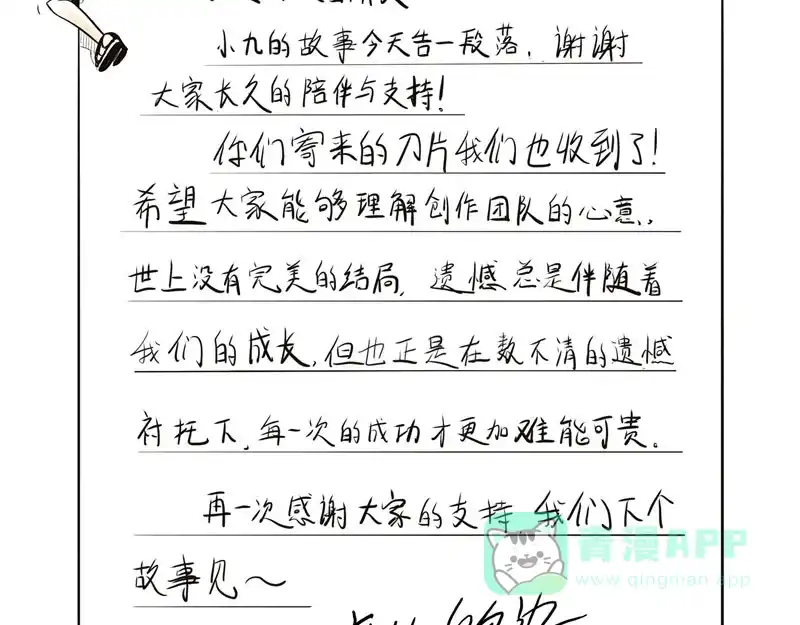 小九的故事今天告一段落，谢谢
大家长久的陪伴与支持！
你们寄来的刀片我们也收到了！
希望大家能够理解创作团队的心意，
世上没有完美的结局，遗憾总是伴随着
我们的成长，但也正是在数不清的遗憾
衬托下，每一次的成功才更加难能可贵。
再一次感谢大家的支持，我们下个
故事见～
青漫APP
www.qingman.app